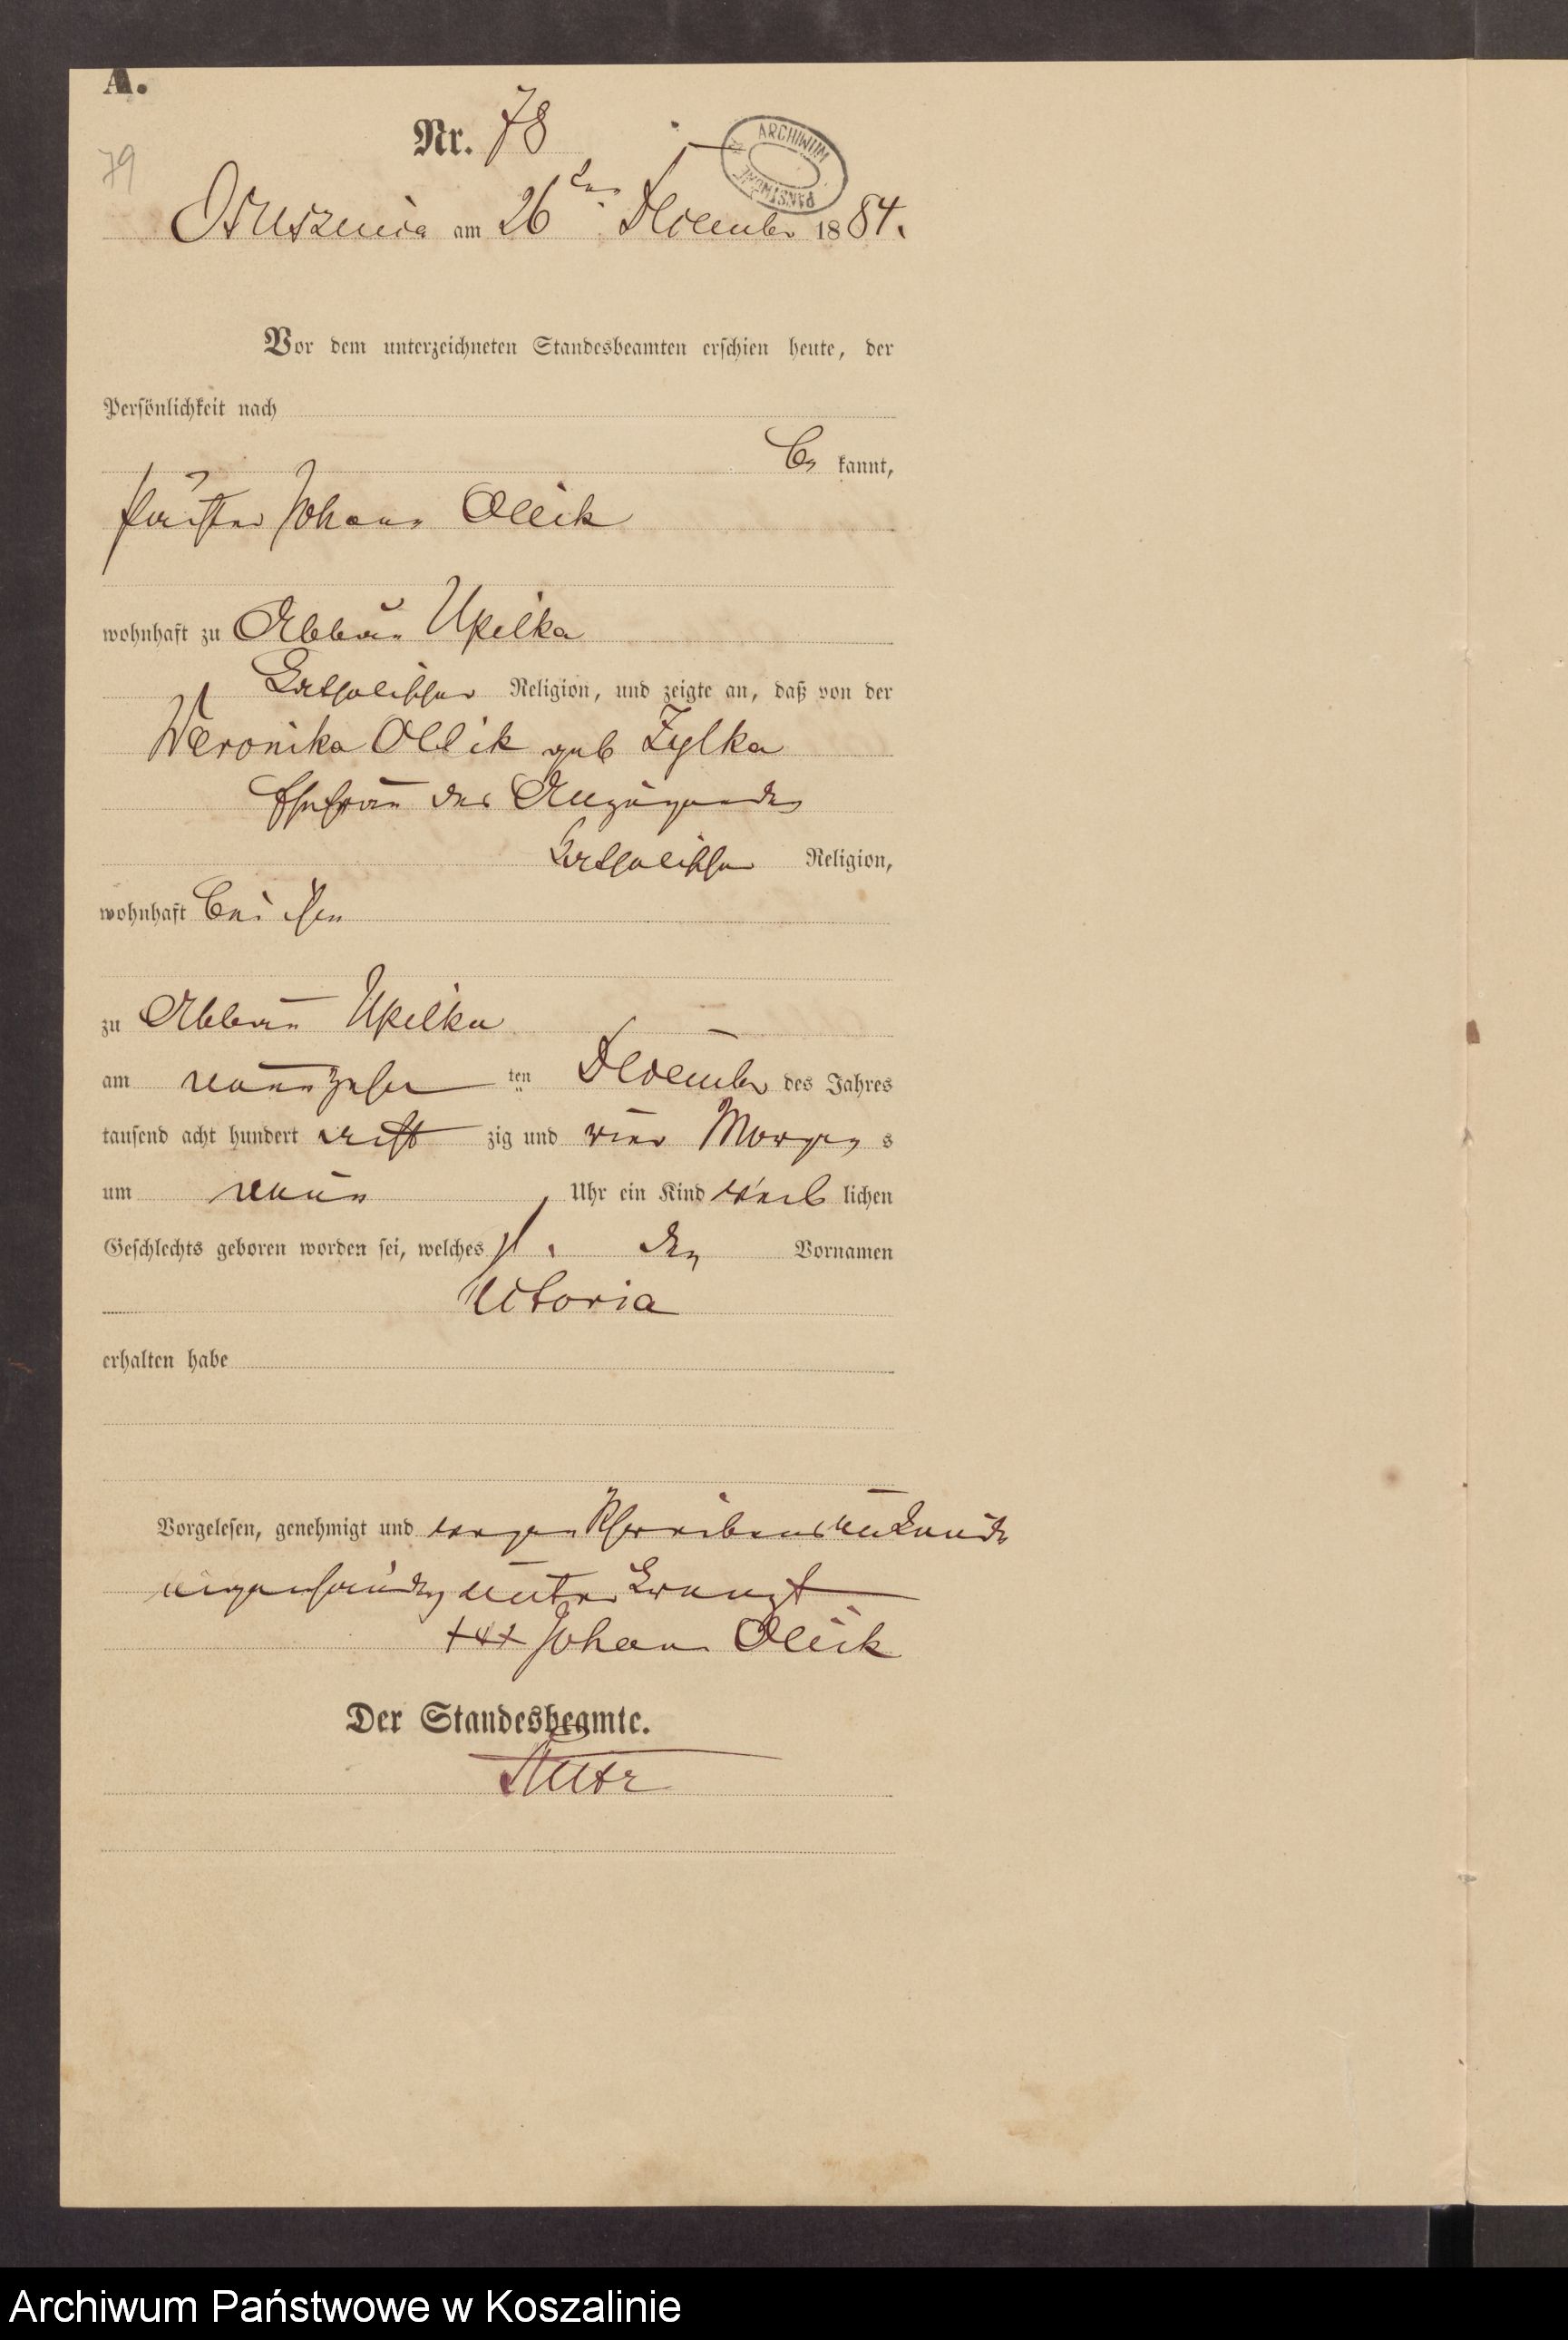 A.
Nr. 78
79
ARCHIWUM PAŃSTWOWE
Osusznica am 26ten December 1884.
Vor dem unterzeichneten Standesbeamten erschien heute, der
Persönlichkeit nach
be kannt,
Johann Ollik
wohnhaft zu Abbau Upilka
katholischer Religion, und zeigte an, daß von der
Weronika Ollik geb Zylka
Ehefrau des Anzeigenden
katholischer Religion,
wohnhaft bei ihm
zu Abbau Upilka
am neunzehn ten December des Jahres
tausend acht hundert acht zig und vier Morgen s
um neun Uhr ein Kind weib lichen
Geschlechts geboren worden sei, welches den Vornamen
Victoria
erhalten habe
Vorgelesen, genehmigt und wegen Schreibensunkunde
unterkreuzt
+++ Johann Ollik
Der Standesbeamte.
Archiwum Państwowe w Koszalinie